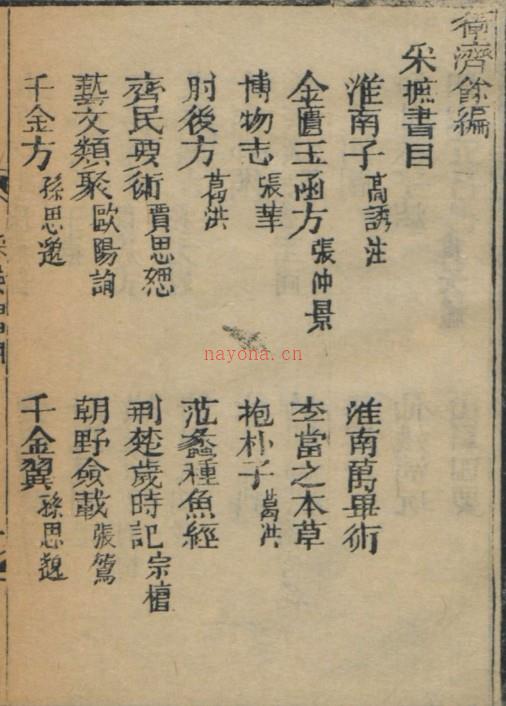 衛濟餘編
采摭書目
淮南子 高誘注
淮南萬畢術
金匱玉函方 張仲景
李當之本草
博物志 張華
抱朴子 葛洪
肘後方 葛洪
范蠡種魚經
齊民要術 賈思勰
荆楚歲時記 宗檀
藝文類聚 歐陽詢
朝野僉載 張鷟
千金方 孫思邈
千金翼 孫思邈
nayona.cn